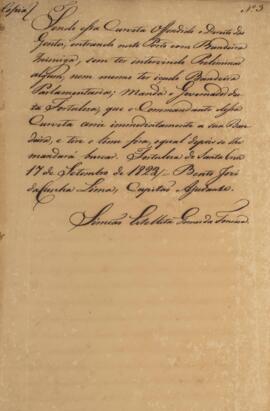 Copia
Nº 3
Tendo essa Curveta Offendido o Direito das
Gentes, entrando neste Porto com Bandeira
inimiga, sem ter intervindo Preliminar
algum, nem menos ter içado Bandeira
Parlamentaria; Manda o Governador des-
ta Fortaleza, que o Commandante dessa
Curveta arrie immediatamente a sua Ban-
deira, e tire o leme fora, o qual depois se lhe
mandará buscar. Fortaleza de Santa Cruz
17 de Setembro de 1823 // Bento José
da Cunha Lima, Capitão Ajudante.
Simeão Estellita Gomes da Fonseca